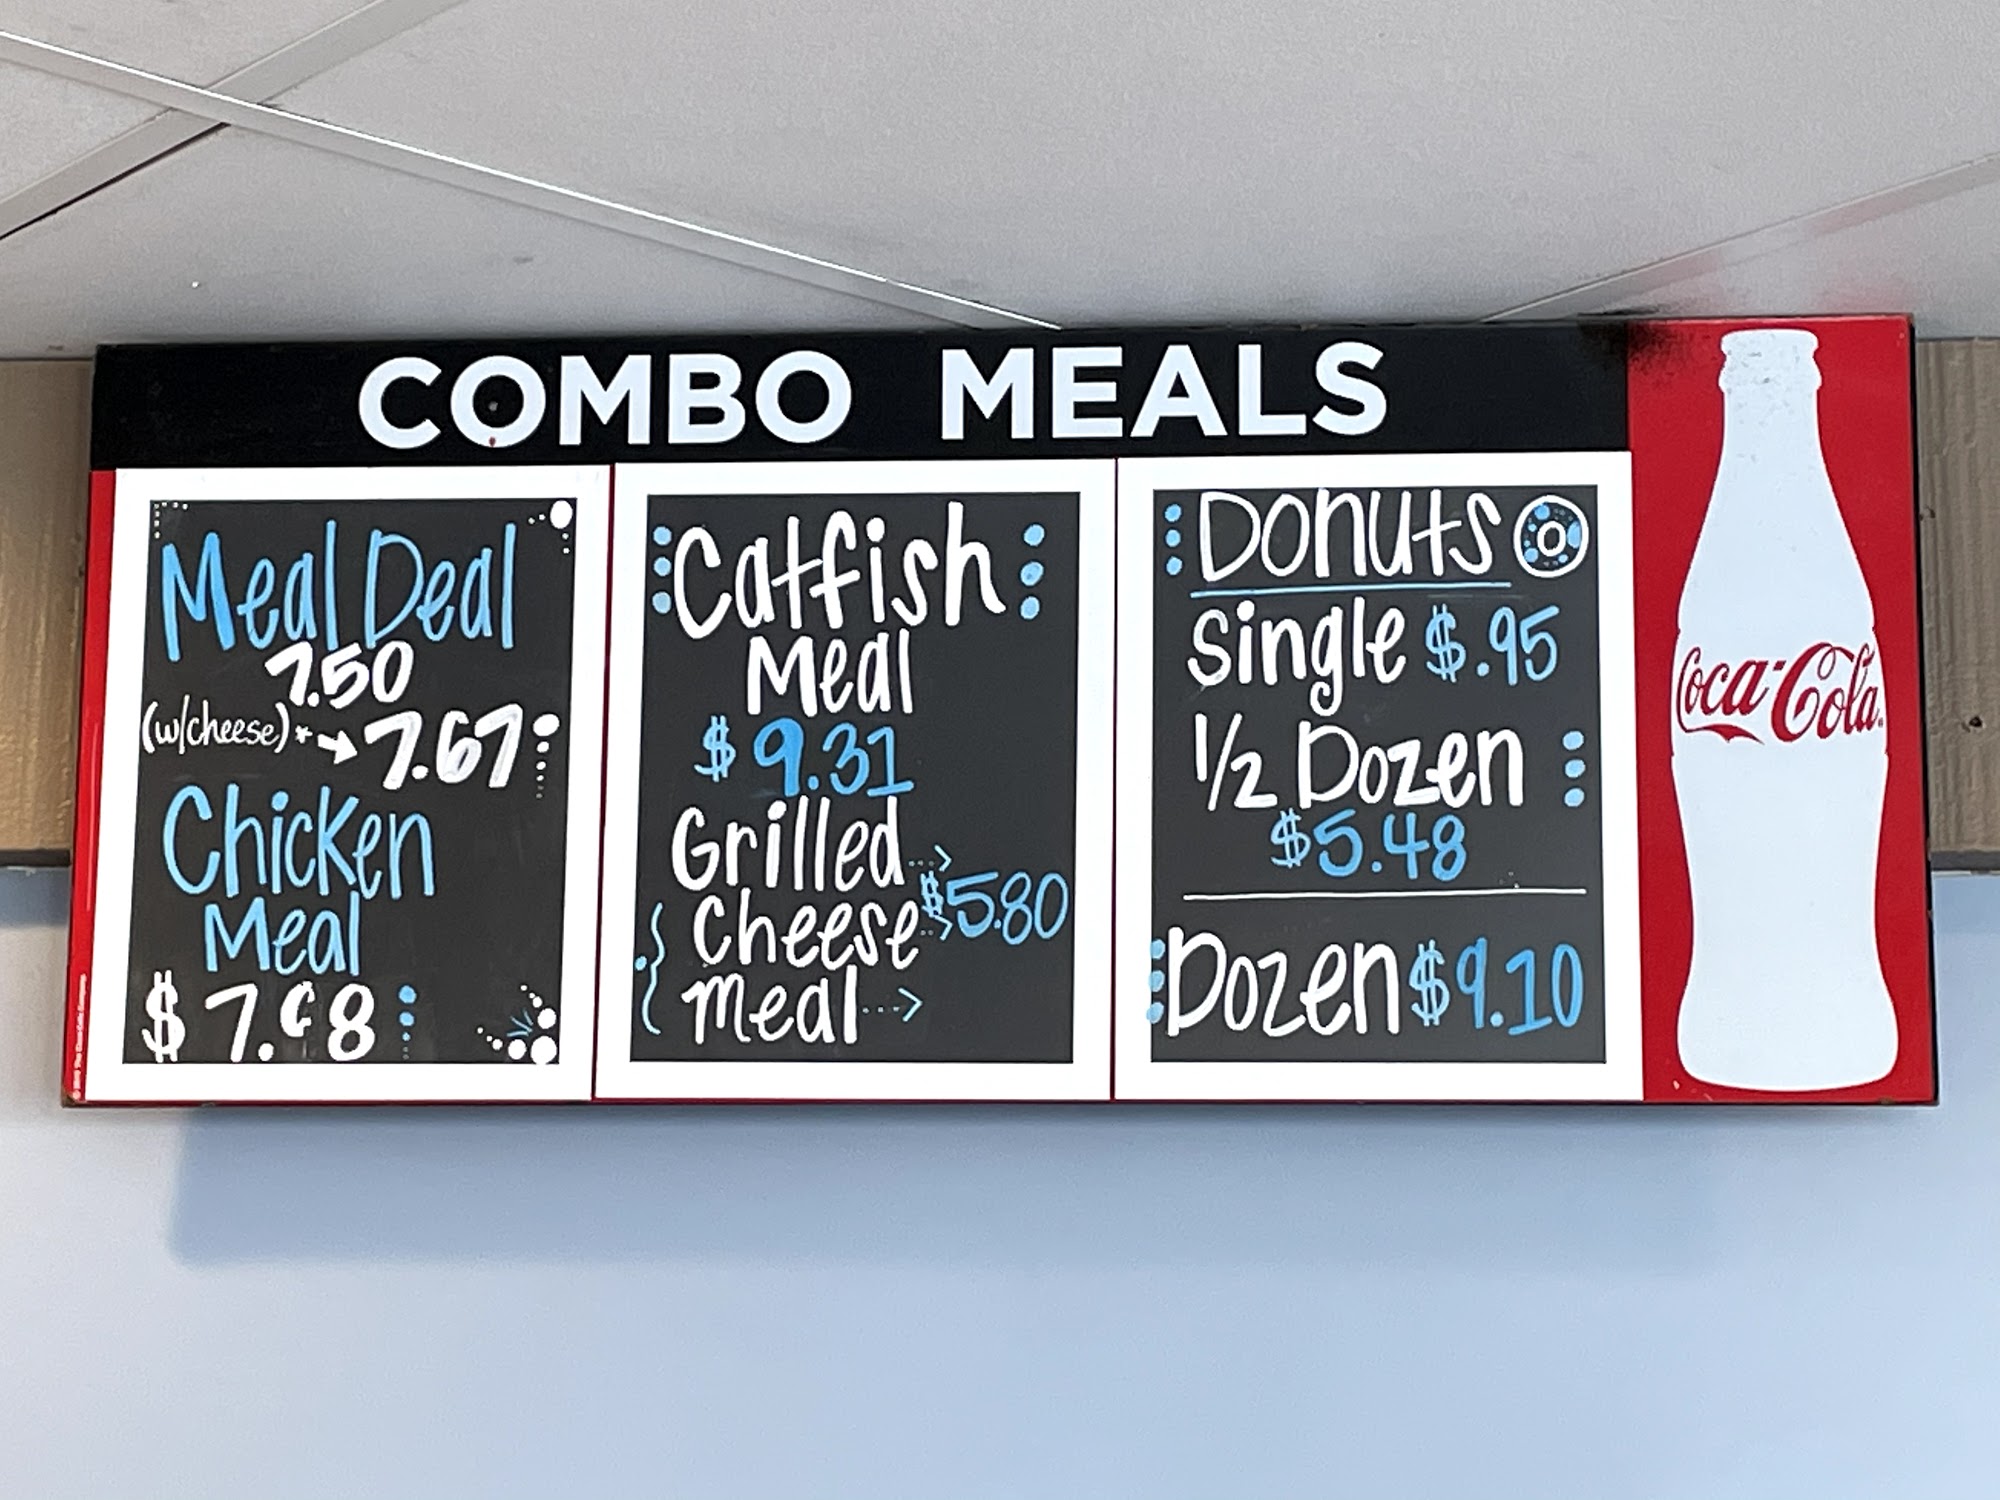 COMBO MEALS
Meal Deal
7.50
(w/cheese)* → 7.67
Chicken
Meal
Catfish
Meal
$ 9.31
Grilled
Cheese $5.80
meal
Donuts
Single $.95
1/2 Dozen
$5.48
Dozen $9.10
Coca-Cola